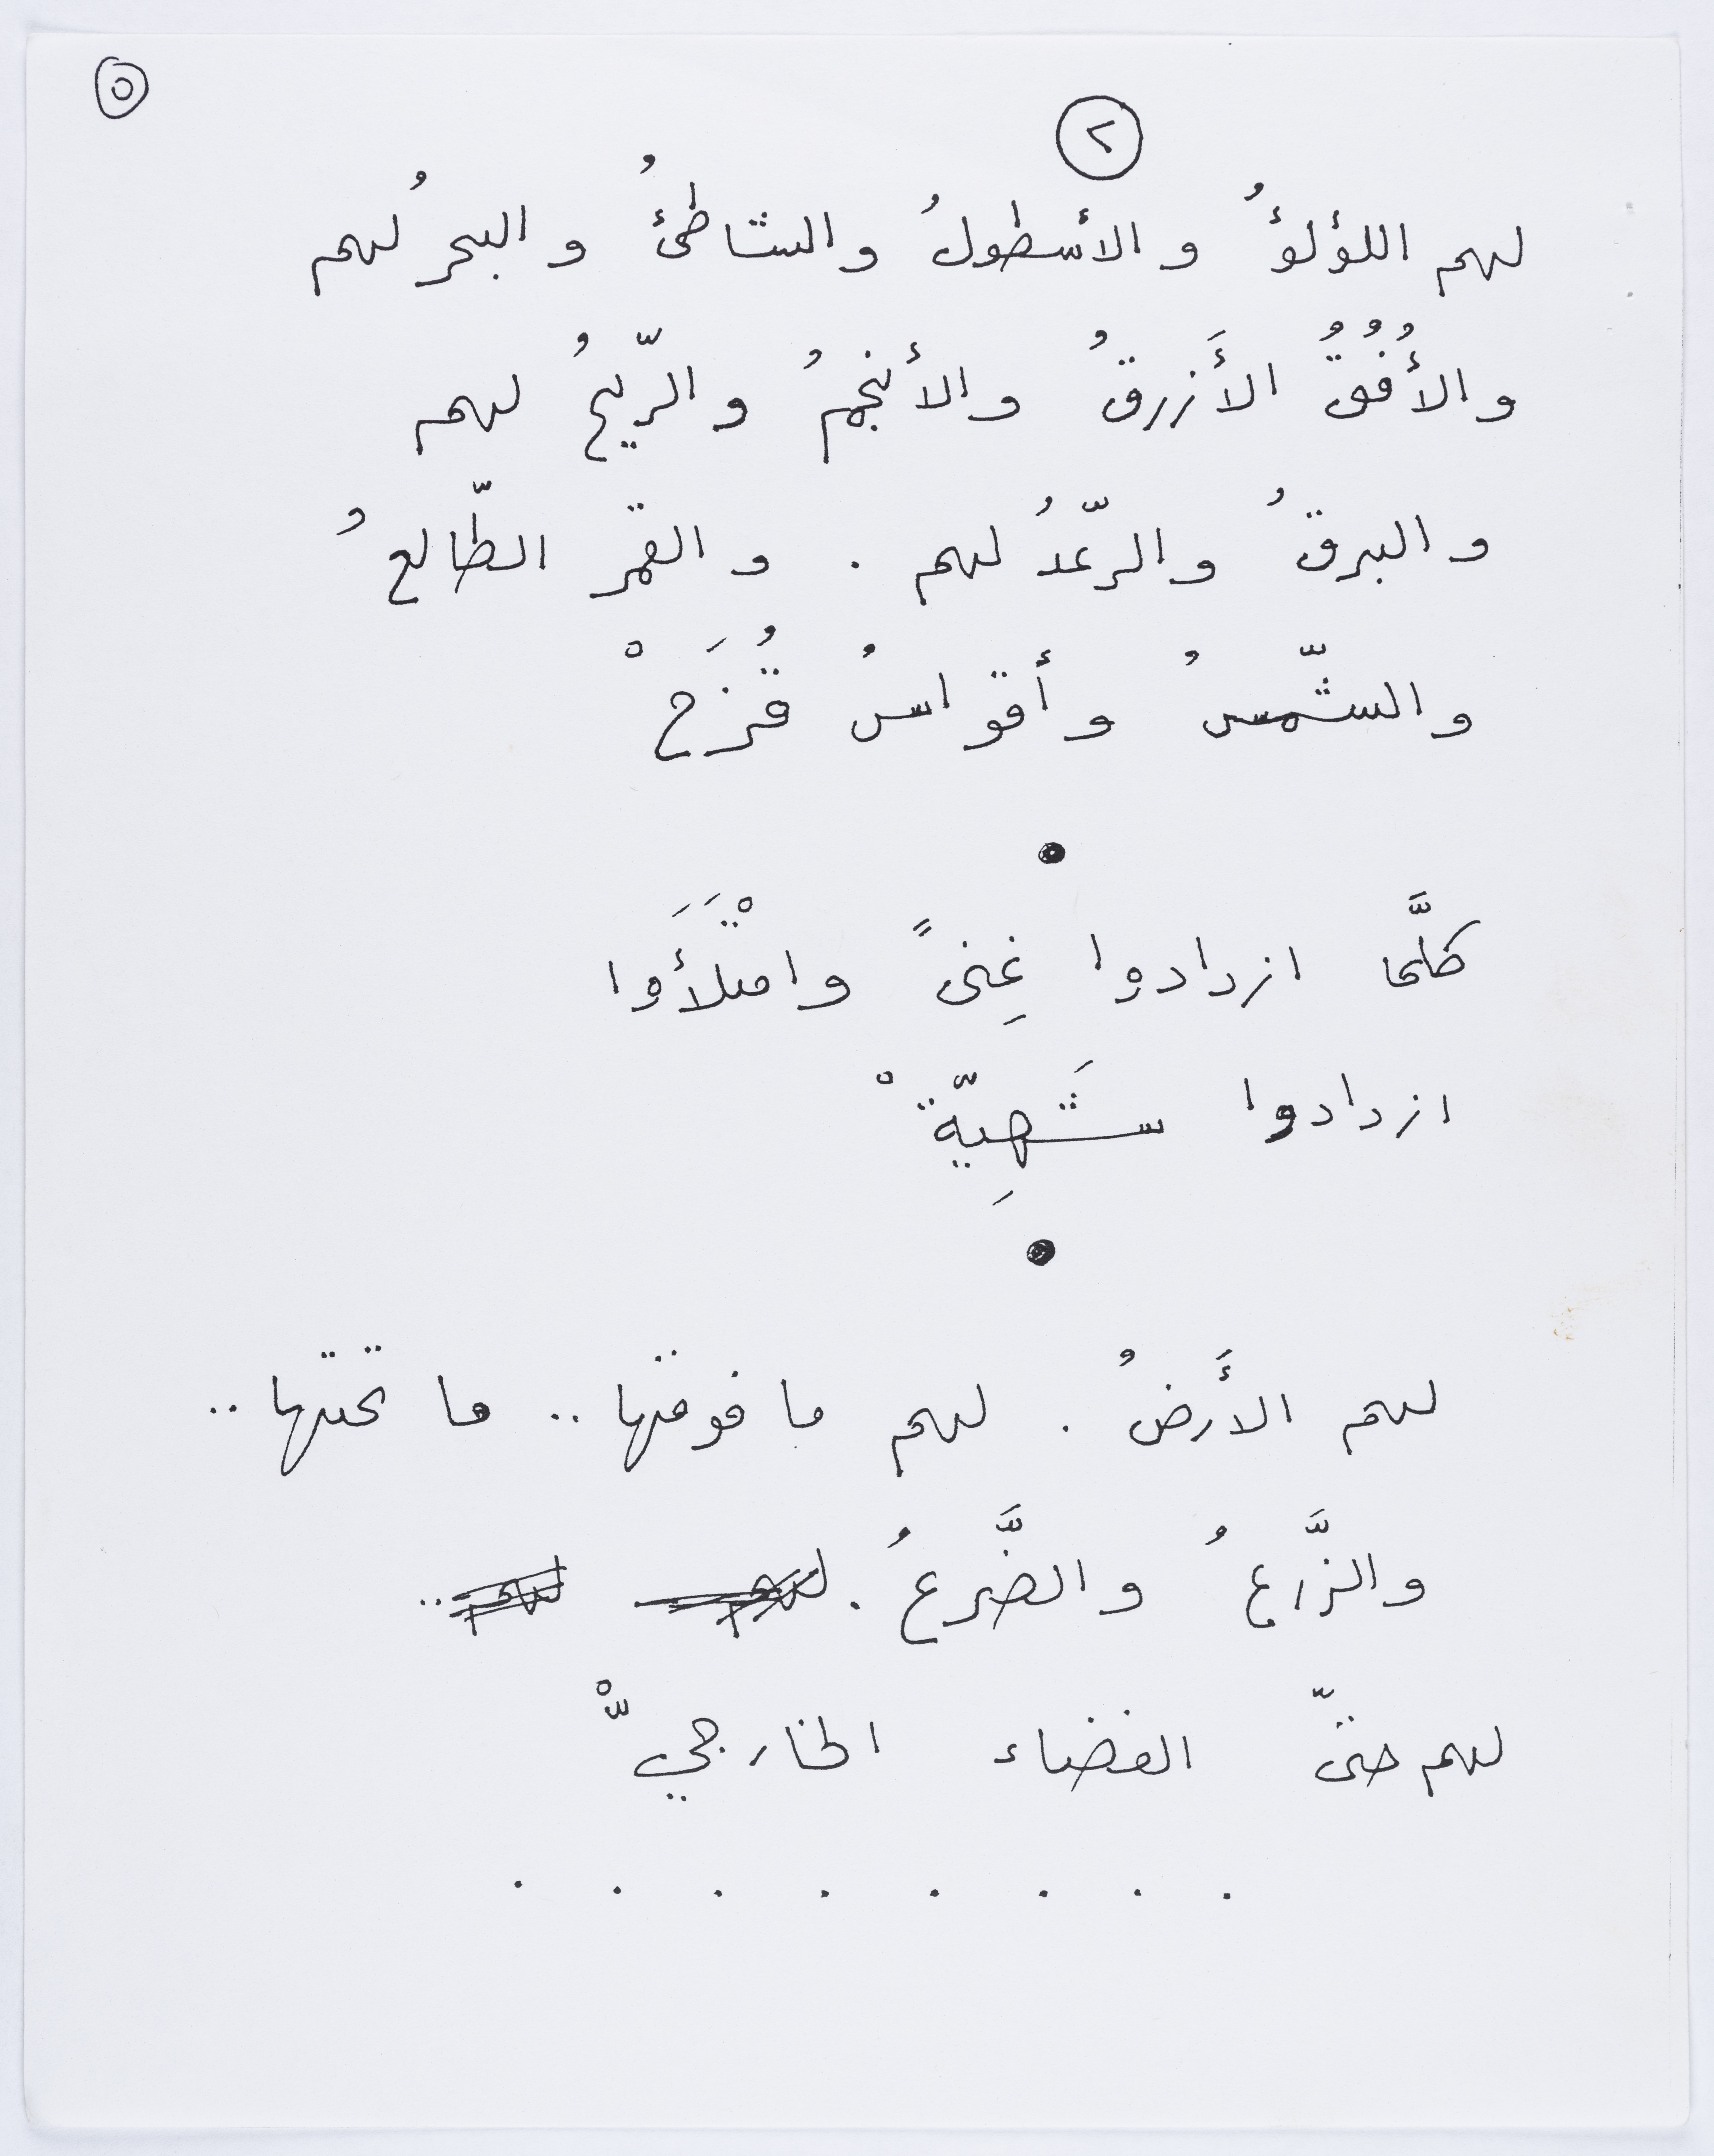 ٥
٢
لهم اللؤلؤُ والأسطولُ والشاطئُ والبحرُ لهم
والأُفُقُ الأَزرقُ والأنجمُ والرّيحُ لهم
والبرقُ والرّعدُ لهم . والقمر الطّالعُ
والشّمسُ وأقواسُ قُزَحْ
•
كلَّما ازدادوا غِنىً وامْتَلَأَوا
ازدادوا شَهِيّةْ
•
لهم الأَرضُ . لهم ما فوقها .. ما تحتها ..
والزَّرعُ والضَّرعُ . لهم لهم ..
لهم حتّى الفضاء الخارجيّْ
. . . . . . . .